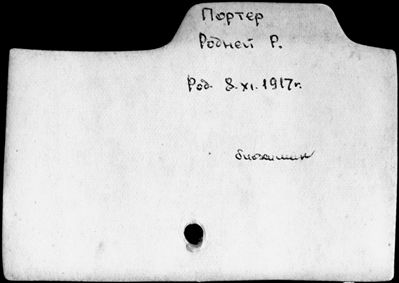 Портер
Родней Р.
Род. 8.XI.1917г.
биохимик